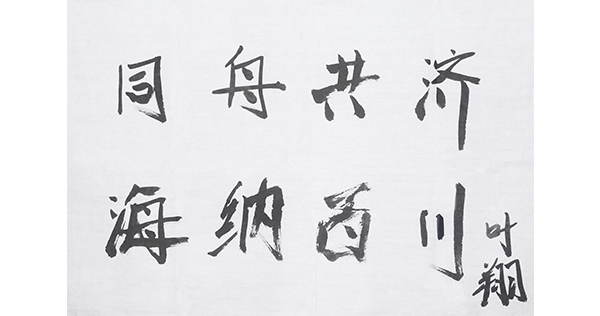 同舟共济
海纳百川
叶翔